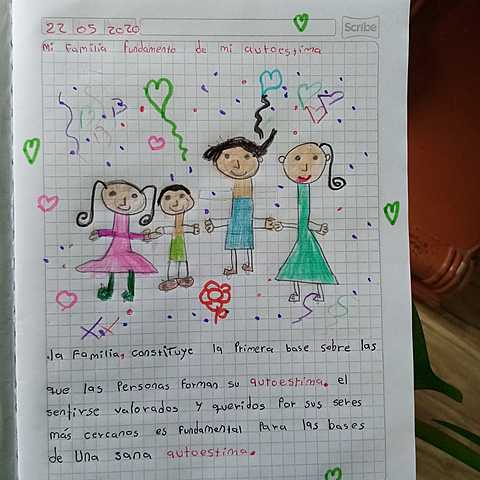 22 05 2020
Scribe
Mi Familia fundamento de mi autoestima
.la Familia, constituye la Primera base sobre las
que las Personas Forman su autoestima. el
sentirse valorados y queridos Por sus seres
más cercanos es Fundamental Para las bases
de Una sana autoestima.